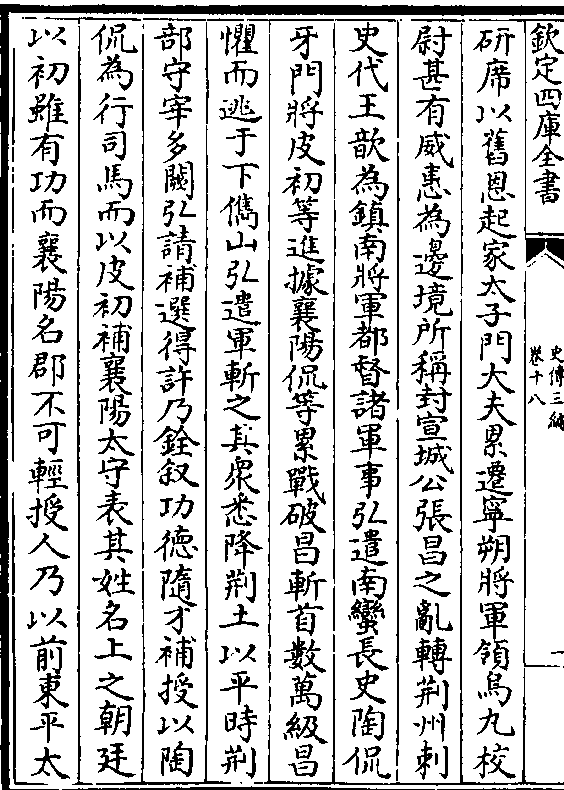 欽定四庫全書
史傳三編
卷十八
一
研席以舊恩起家太子門大夫累遷寧朔將軍領烏九校
尉甚有威惠為邊境所稱封宣城公張昌之亂轉荆州刺
史代王歆為鎮南將軍都督諸軍事弘遣南蠻長史陶侃
牙門將皮初等進據襄陽侃等累戰破昌斬首數萬級昌
懼而逃于下儁山弘遣軍斬之其衆悉降荆土以平時荆
部守宰多闕弘請補選得許乃銓叙功德隨才補授以陶
侃為行司馬而以皮初補襄陽太守表其姓名上之朝廷
以初雖有功而襄陽名郡不可輕授人乃以前東平太